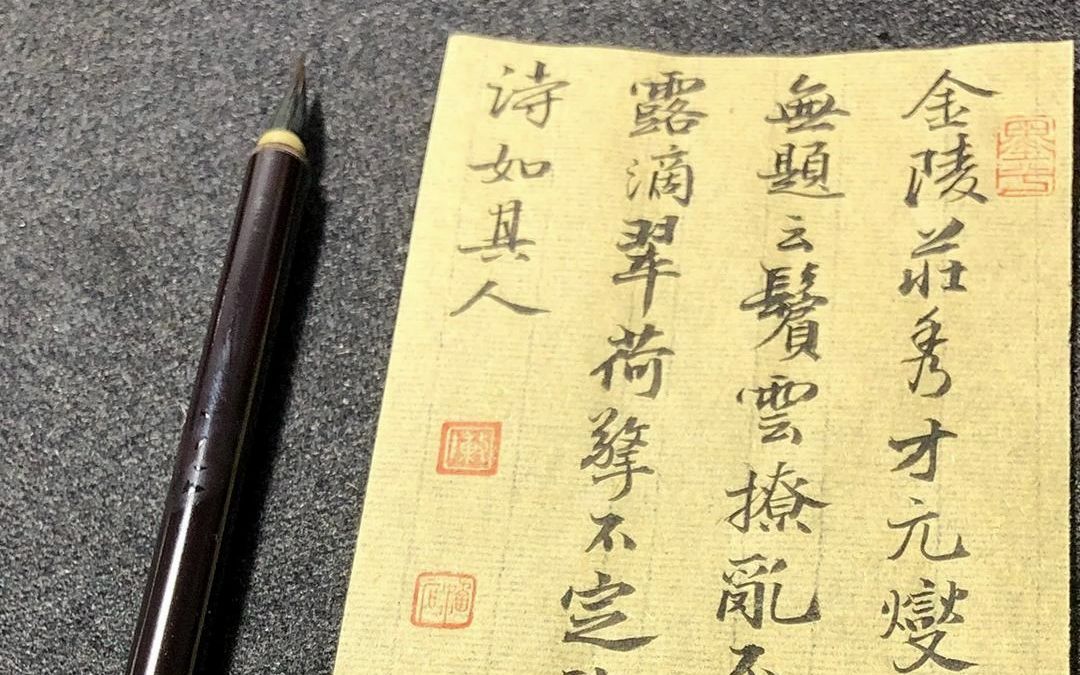 金陵莊秀才元燮
無題云鬢雲撩亂不
露滴翠荷擎不定
詩如其人